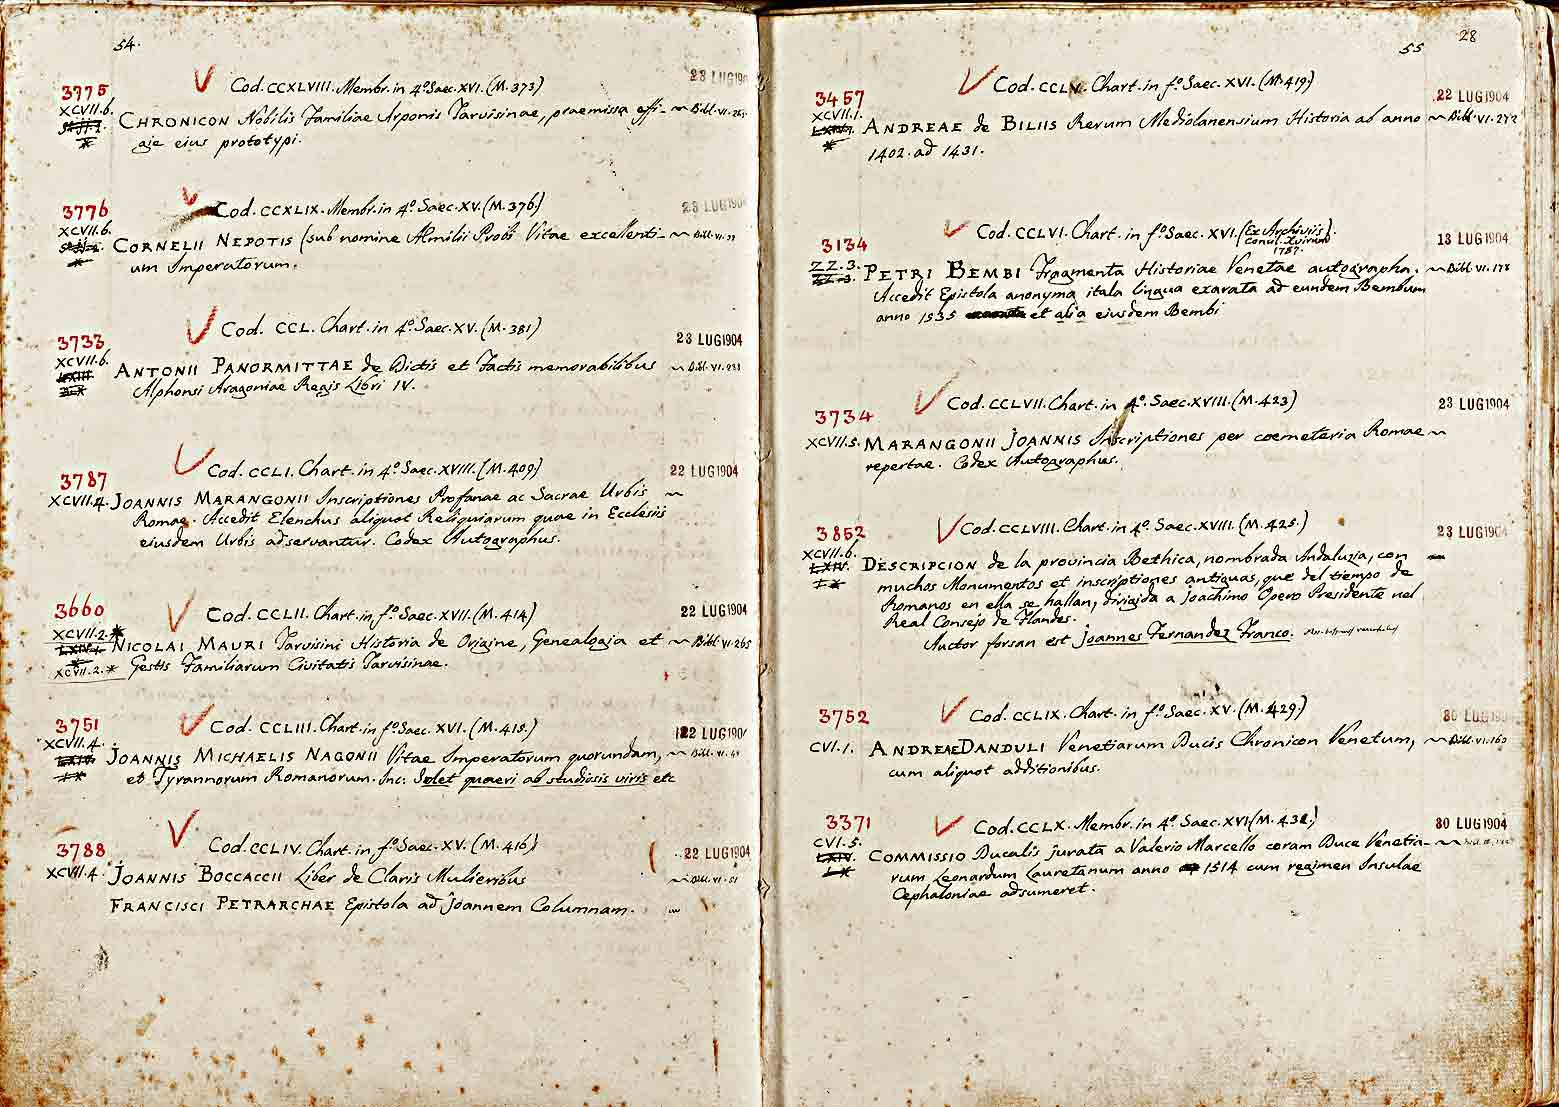 54.
3775 Cod. CCXLVIII. Membr. in 4º Saec. XVI. (M. 373) 23 LUG 190
XCVII.6. CHRONICON Nobilis Familiae Arponis Tarvisinae, praemissa effi- Bibl. VI.
gie eius prototypi.
3776 Cod. CCXLIX. Membr. in 4º Saec. XV. (M. 376.) 23 LUG 190
XCVII.6. CORNELII NEPOTIS (sub nomine Æmilii Probi Vitae excellenti- Bibl. VI.
um Imperatorum.
3733 Cod. CCL. Chart. in 4º Saec. XV. (M. 381) 23 LUG 1904
XCVII.6. ANTONII PANORMITTAE de Dictis et Factis memorabilibus Bibl. VI.
LXIII Alphonsi Aragoniae Regis Libri IV.
3787 Cod. CCLI. Chart. in 4º Saec. XVIII. (M. 409) 22 LUG 1904
XCVII.4. JOANNIS MARANGONII Inscriptiones Profanae ac Sacrae Urbis
Romae. Accedit Elenchus aliquot Reliquiarum quae in Ecclesiis
eiusdem Urbis adservantur. Codex Autographus.
3660 Cod. CCLII. Chart. in fº Saec. XVII. (M. 414) 22 LUG 1904
XCVII.2.*
LXIV. NICOLAI MAURI Tarvisini Historia de Origine, Genealogia et Bibl. VI. 265
XCVII.2.* Gestis Familiarum Civitatis Tarvisinae.
3751 Cod. CCLIII. Chart. in fº Saec. XVI. (M. 415.) 22 LUG 190
XCVII.4.
LXIV JOANNIS MICHAELIS NAGONII Vitae Imperatorum quorundam, Bibl. VI.
et Tyrannorum Romanorum. Inc: Solet quaeri ab studiosis viris etc
3788 Cod. CCLIV. Chart. in fº Saec. XV. (M. 416) 22 LUG 1904
XCVII.4. JOANNIS BOCCACCII Liber de Claris Mulieribus Bibl. VI. 51
FRANCISCI PETRARCHAE Epistola ad Joannem Columnam.
55 28
3457 Cod. CCLV. Chart. in fº Saec. XVI. (M. 419) 22 LUG 1904
XCVII.1.
LXIV. ANDREAE de BILIIS Rerum Mediolanensium Historia ab anno Bibl. VI. 272
1402. ad 1431.
3134 Cod. CCLVI. Chart. in fº Saec. XVI. (Ex Archiviis). 13 LUG 1904
consil. Xvirum
1787.
ZZ.3. PETRI BEMBI Fragmenta Historiae Venetae autographa. Bibl. VI. 178
ZZ.3. Accedit Epistola anonyma itala lingua exarata ad eundem Bembum
anno 1535 exarata et alia eiusdem Bembi
3734 Cod. CCLVII. Chart. in 4º Saec. XVIII. (M. 423) 23 LUG 1904
XCVII.5. MARANGONII JOANNIS Inscriptiones per coemeteria Romae
repertae. Codex Autographus.
3852 Cod. CCLVIII. Chart. in 4º Saec. XVIII. (M. 425.) 23 LUG 1904
XCVII.6.
LXIV. DESCRIPCION de la provincia Bethica, nombrada Andaluzia, con
muchos Monumentos et inscriptiones antiguas, que del tiempo de
Romanos en ella se hallan, dirigida a Joachimo Opero Presidente nel
Real Consejo de Flandes.
Auctor forsan est Joannes Fernandez Franco.
3752 Cod. CCLIX. Chart. in fº Saec. XV. (M. 429) 30 LUG 190
CVI.1. ANDREAE DANDULI Venetiarum Ducis Chronicon Venetum, Bibl. VI. 160
cum aliquot additionibus.
3371 Cod. CCLX. Membr. in 4º Saec. XVI. (M. 431.) 30 LUG 1904
CVI.5.
LXIV. COMMISSIO Ducalis jurata a Valerio Marcello coram Duce Venetia-
rum Leonardum Lauretanum anno 1514 cum regimen Insulae
Cephaloniae adsumeret.